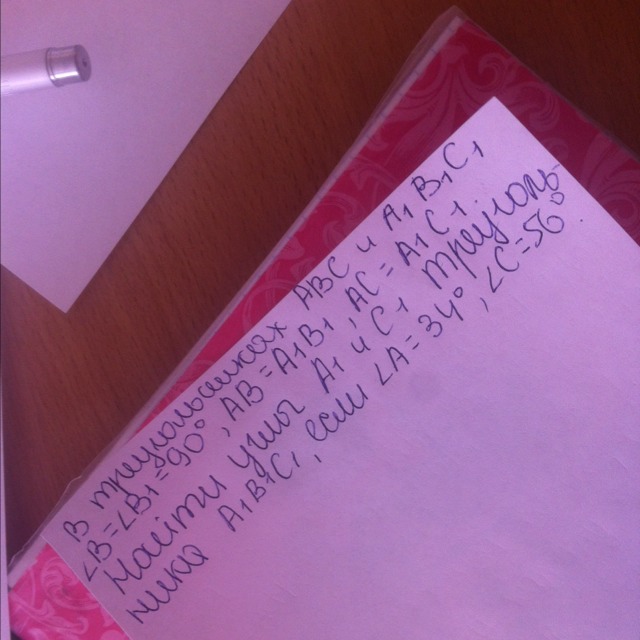 В треугольниках ABC и A1B1C1
∠B=∠B1=90°, AB=A1B1, AC=A1C1.
Найти углы A1 и C1 треуголь-
ника A1B1C1, если ∠A=34°, ∠C=56°.